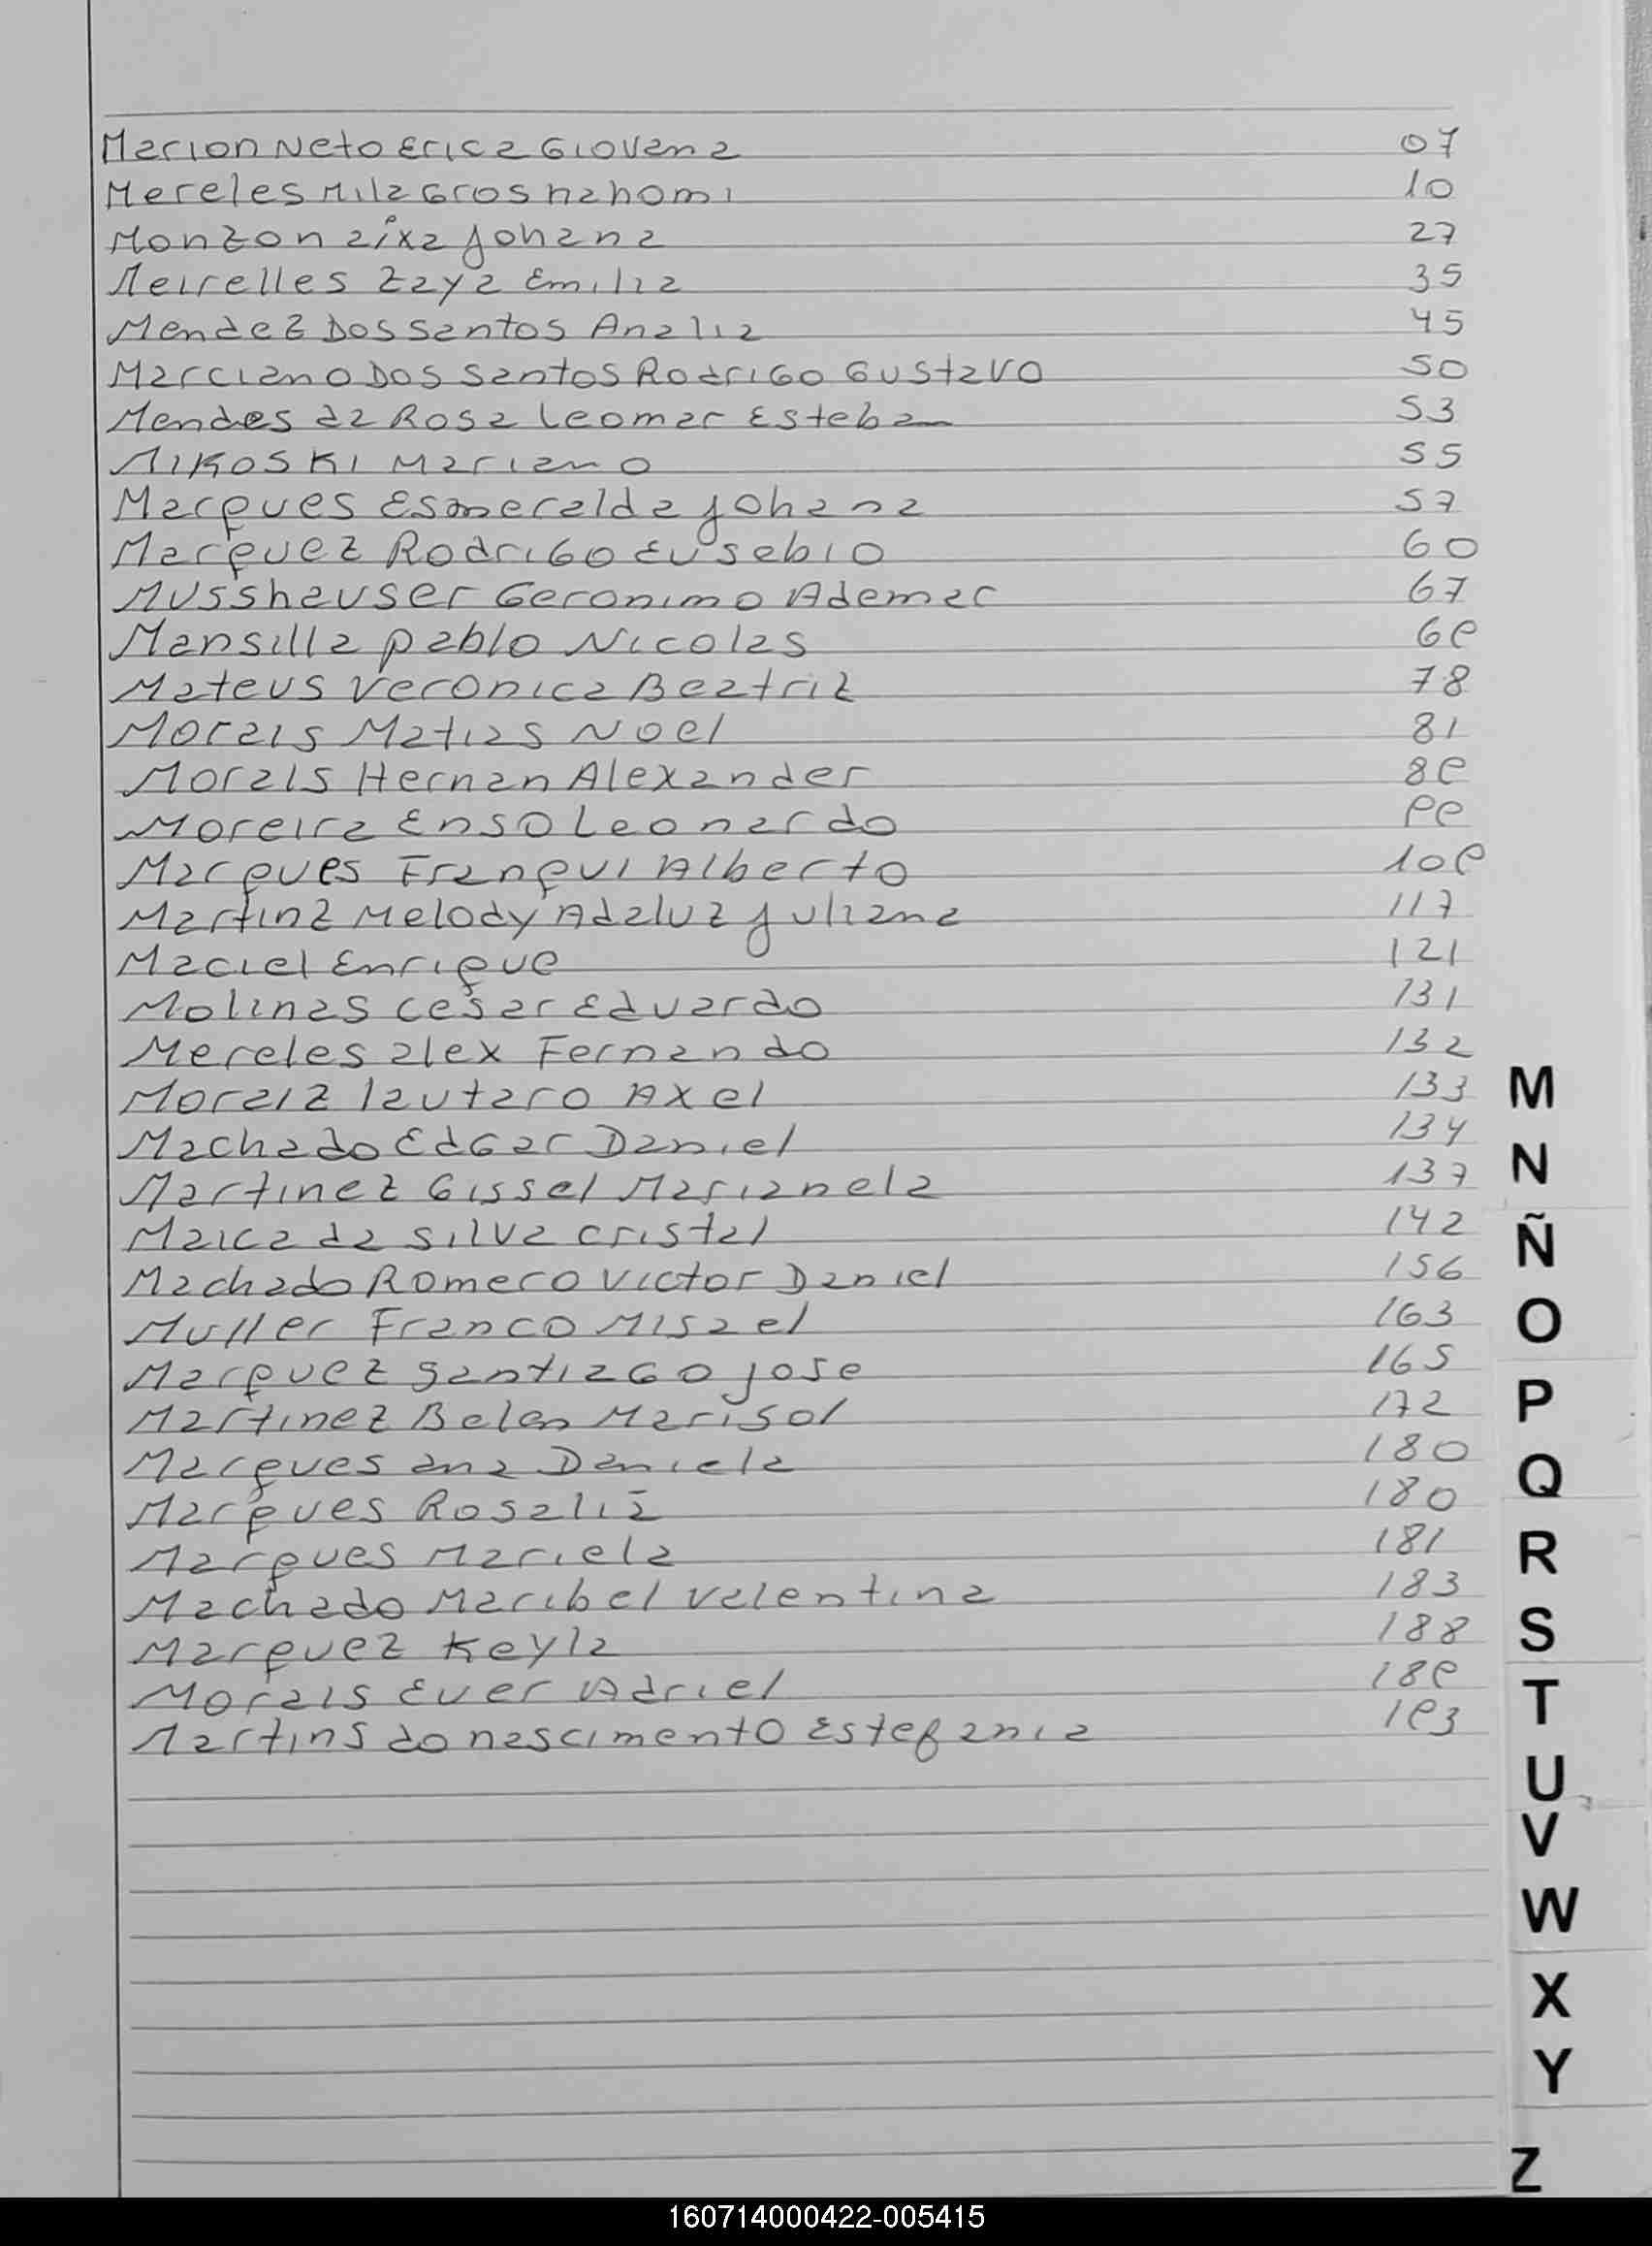 Marion Neto Erica Giovana 07
Mereles Milagros nahomi 10
Monzon aixa Johana 27
Meirelles Zaya Emilia 35
Mendez Dos Santos Analia 45
Marciano Dos Santos Rodrigo Gustavo 50
Mendes da Rosa Leomar Esteban 53
Mikoski Mariano 55
Marques Esmeralda Johana 57
Marquez Rodrigo Eusebio 60
Musshauser Geronimo Ademar 67
Mansilla pablo Nicolas 69
Mateus Veronica Beatriz 78
Morais Matias Noel 81
Morais Hernan Alexander 89
Moreira Enso Leonardo 99
Marques Franqui Alberto 109
Martinz Melody Adaluz Juliana 117
Maciel Enrique 121
Molinas cesar Eduardo 131
Mereles alex Fernando 132
Moraiz lautaro Axel 133
Machado Edgar Daniel 134
Martinez Gissel Marianela 137
Maica da silva cristal 142
Machado Romero Victor Daniel 156
Muller Franco Misael 163
Marquez Santiago Jose 165
Martinez Belen Marisol 172
Marques ana Daniela 180
Marques Rosalia 180
Marques Mariela 181
Machado Maribel Valentina 183
Marquez Keyla 188
Morais Ever Adriel 189
Martins do nascimento Estefania 193
M
N
Ñ
O
P
Q
R
S
T
U
V
W
X
Y
Z
160714000422-005415